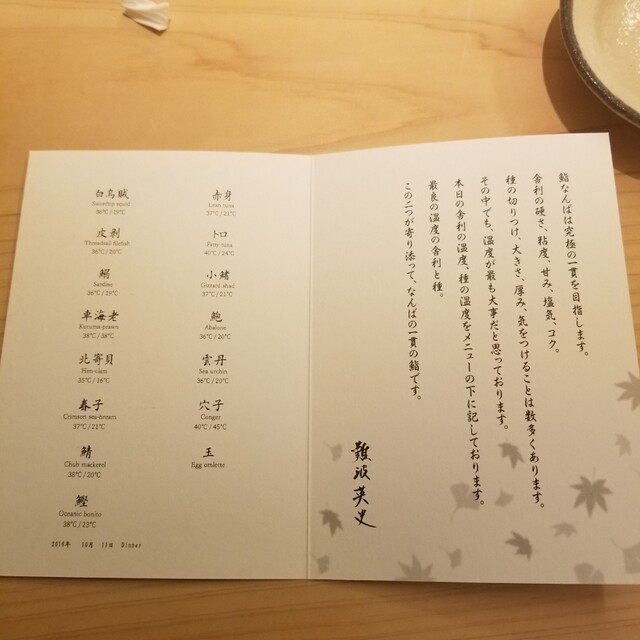 白烏賊
Swordtip squid
36℃/25℃
皮剥
Threadsail filefish
36℃/20℃
鰯
Sardine
36℃/25℃
車海老
Kuruma-prawn
38℃/38℃
北寄貝
Hen-clam
35℃/16℃
春子
Crimson sea-bream
37℃/21℃
鯖
Chub mackerel
38℃/20℃
鰹
Oceanic bonito
38℃/23℃
赤身
Lean tuna
37℃/21℃
トロ
Fatty tuna
40℃/24℃
小鰭
Gizzard shad
37℃/21℃
鮑
Abalone
36℃/20℃
雲丹
Sea urchin
36℃/20℃
穴子
Conger
40℃/45℃
玉
Egg omlette
10月
Dinner
鮨なんばは究極の一貫を目指します。
舎利の硬さ、粘度、甘み、塩気、コク。
種の切りつけ、大きさ、厚み、気をつけることは数多くあります。
その中でも、温度が最も大事だと思っております。
本日の舎利の温度、種の温度をメニューの下に記しております。
最良の温度の舎利と種。
この二つが寄り添って、なんばの一貫の鮨です。
難波英史